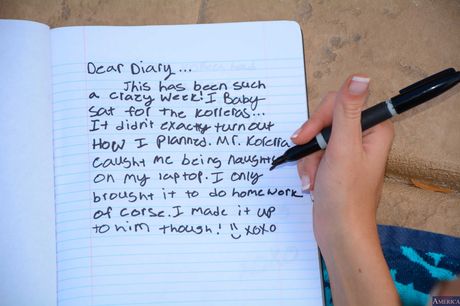 Dear Diary...
This has been such
a crazy week! I Baby
sat for the Korreras...
It didn't exactly turn out
How I planned. Mr. Korerra
caught me being naughty
on my laptop. I only
brought it to do homework
of corse. I made it up
to him though! xoxo
AMERICA